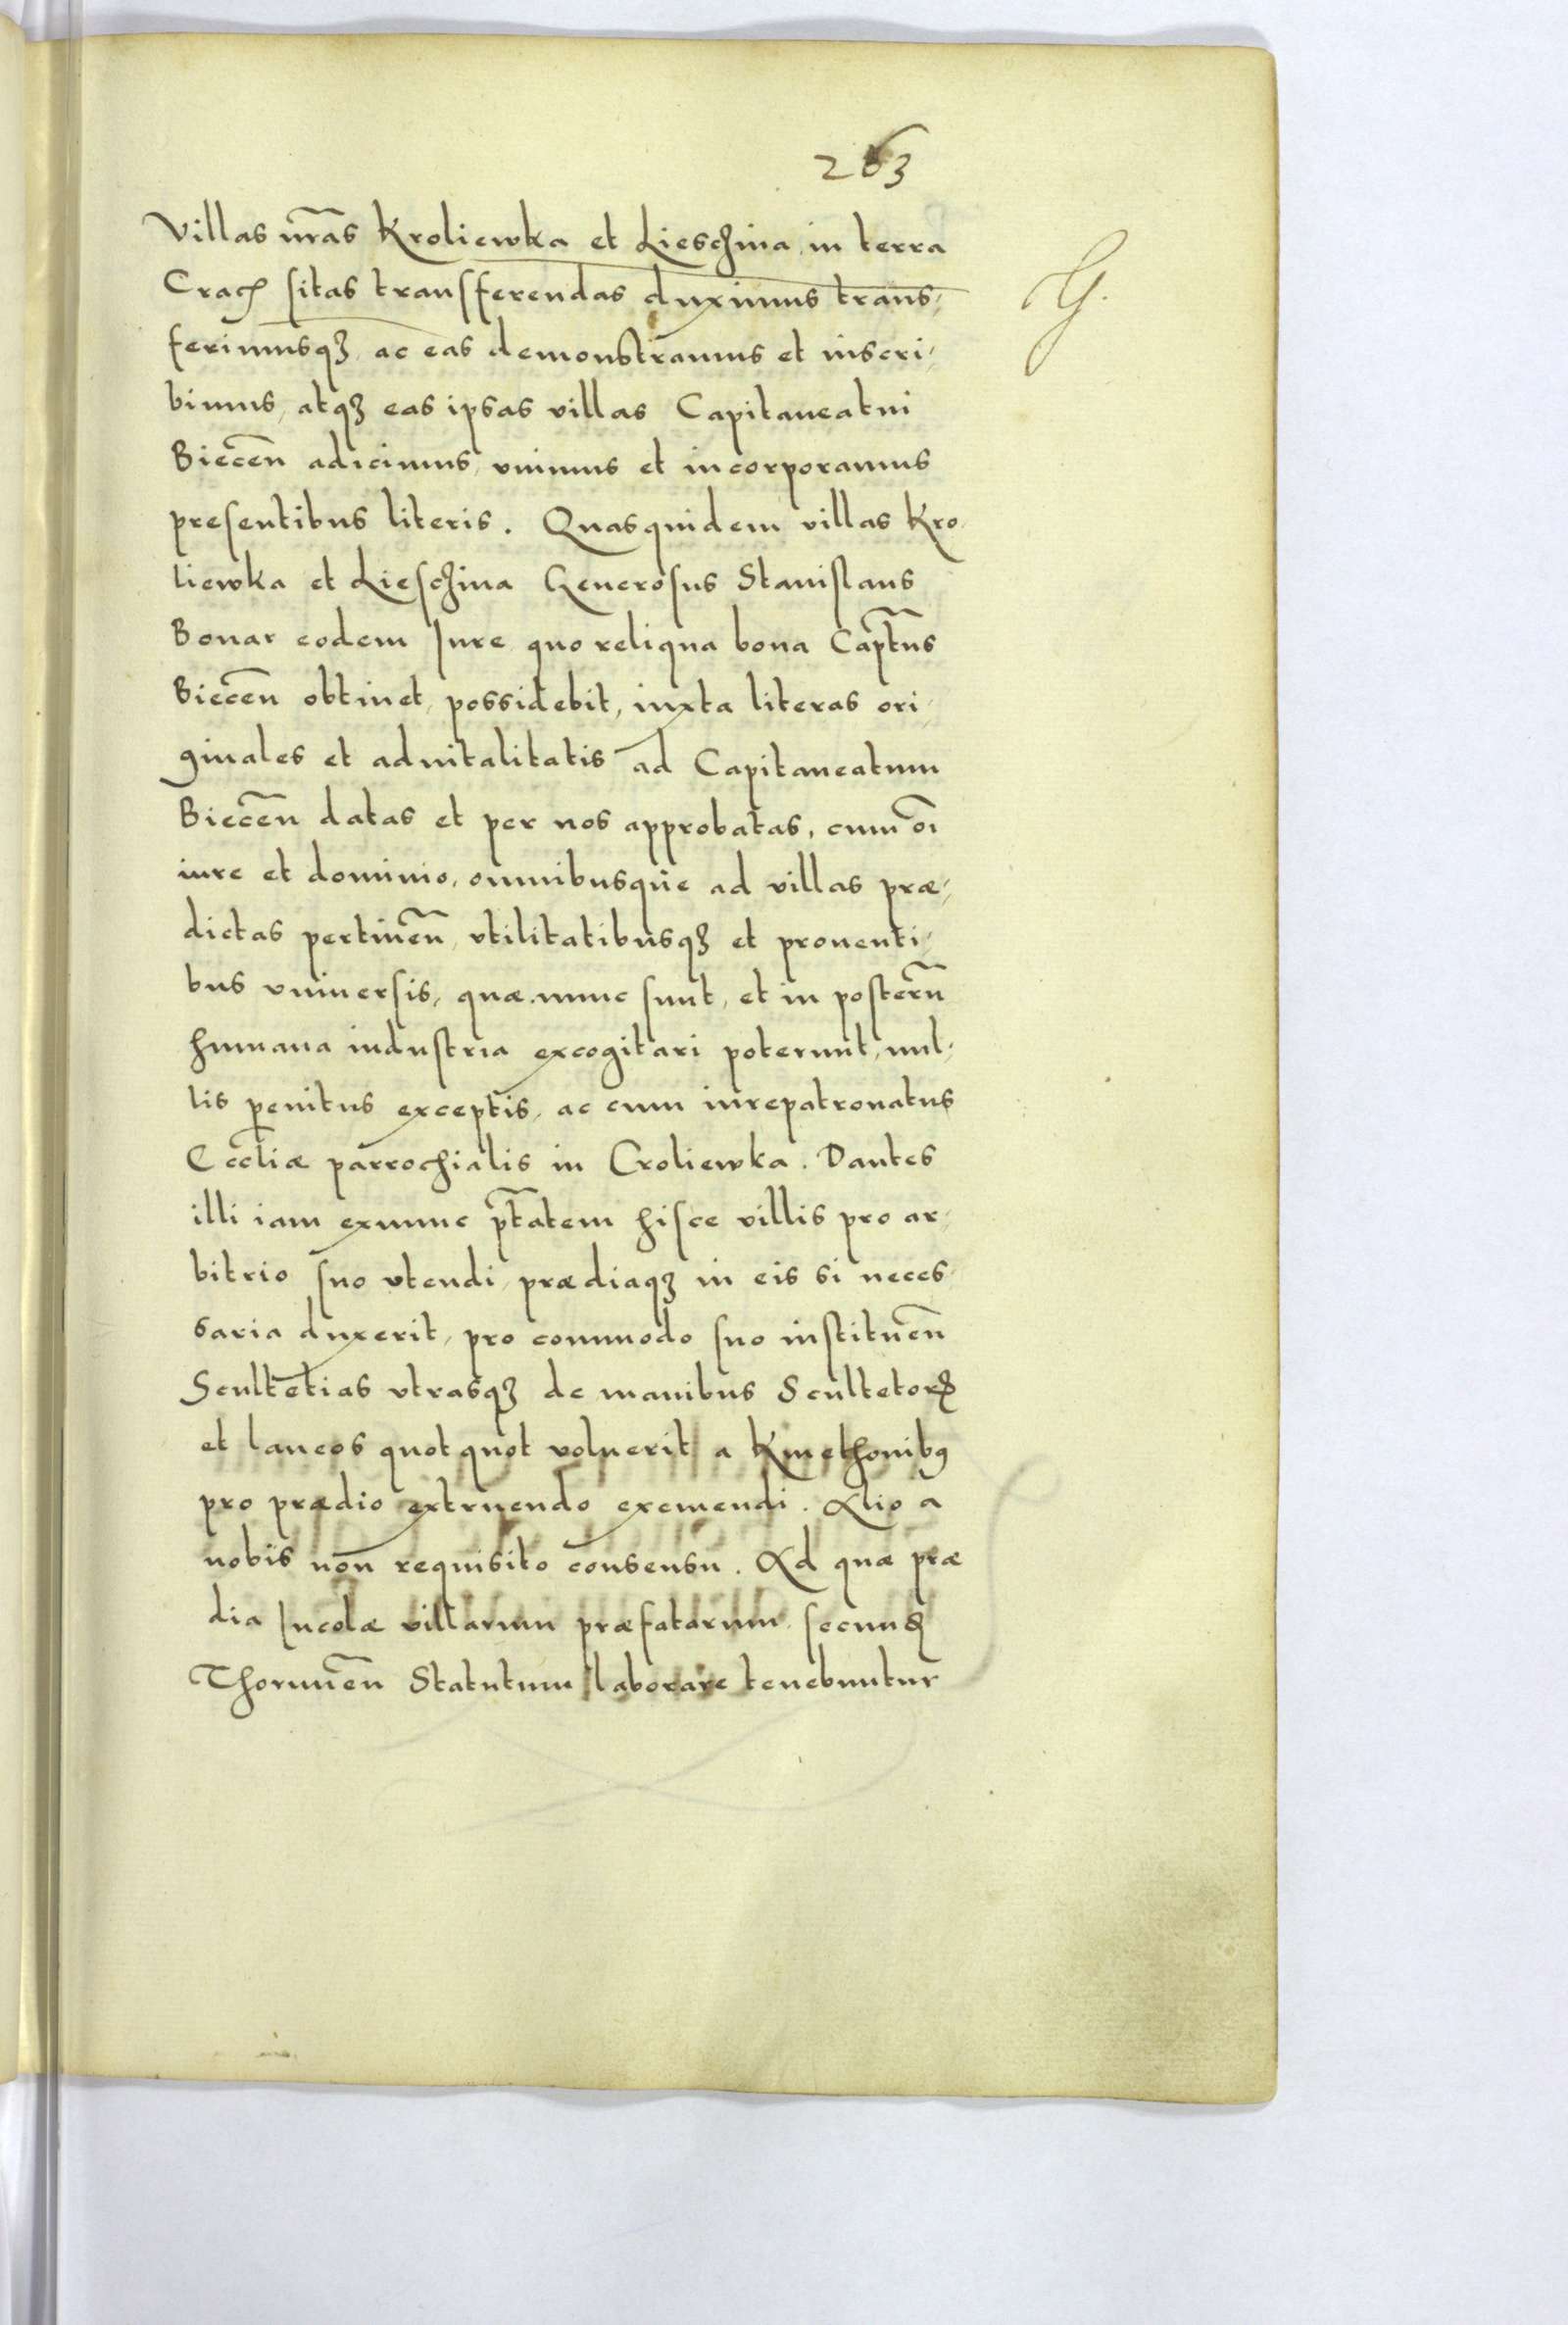 263
Villas nr̃as Kroliewka et Lieschina in terra
G.
Crac̃ sitas transferendas duximus trans-
ferimusqȝ ac eas demonstramus et inscri-
bimus, atqȝ eas ipsas villas Capitaneatui
Biecen̄ adicimus, vnimus et incorporamus
presentibus literis. Quasquidem villas Kro
liewka et Lieschina Generosus Stanislaus
Bonar eodem Iure quo reliqua bona Captũs
Biecen̄ obtinet, possidebit, iuxta literas ori-
ginales et aduitalitatis ad Capitaneatum
Biecen̄ datas et per nos approbatas, cum oĩ
iure et dominio, omnibusque ad villas præ-
dictas pertinen̄, vtilitatibusqȝ et prouenti-
bus vniuersis, quæ nunc sunt, et in posterũ
humana industria excogitari poterunt, nul-
lis penitus exceptis, ac cum iurepatronatus
Eccl̃iæ parrochialis in Croliewka. Dantes
illi iam exnunc ptãtem hisce villis pro ar-
bitrio suo vtendi, prædiaqȝ in eis si neces-
saria duxerit, pro commodo suo instituen̄
Scultetias vtrasqȝ de manibus Scultetorꝝ
et laneos quotquot voluerit a Kmethonibꝰ
pro prædio extruendo exemendi. Alio a
nobis non requisito consensu. Ad quæ præ
dia Incolæ villarum præfatarum secunď
Thorunen̄ Statutum laborare tenebuntur